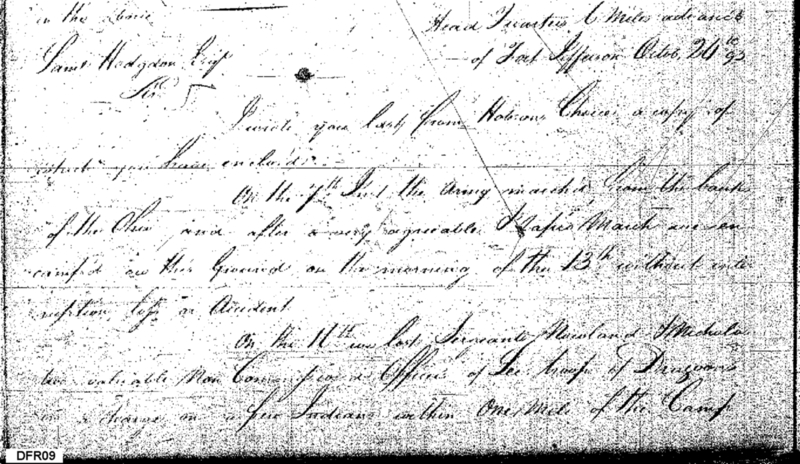 in the
Head Quarters 6 Miles advance
of Fort Jefferson Octob. 24th 93
Saml Hodgdon Esqr
Sir
I wrote you last from Hobsons Choice a copy of
which you have enclosed.
On the 7th Inst the Army march'd from the banks
of the Ohio and after a very agreeable & rapid March we en
camp'd on this Ground on the morning of the 13th without inte
ruption loss or Accident
On the 11th we lost Serjeants &
two valuable Non Commissioned Officers of Lee troop of Dragoons
in a charge on a few Indians within One Mile of the Camp
DFR09